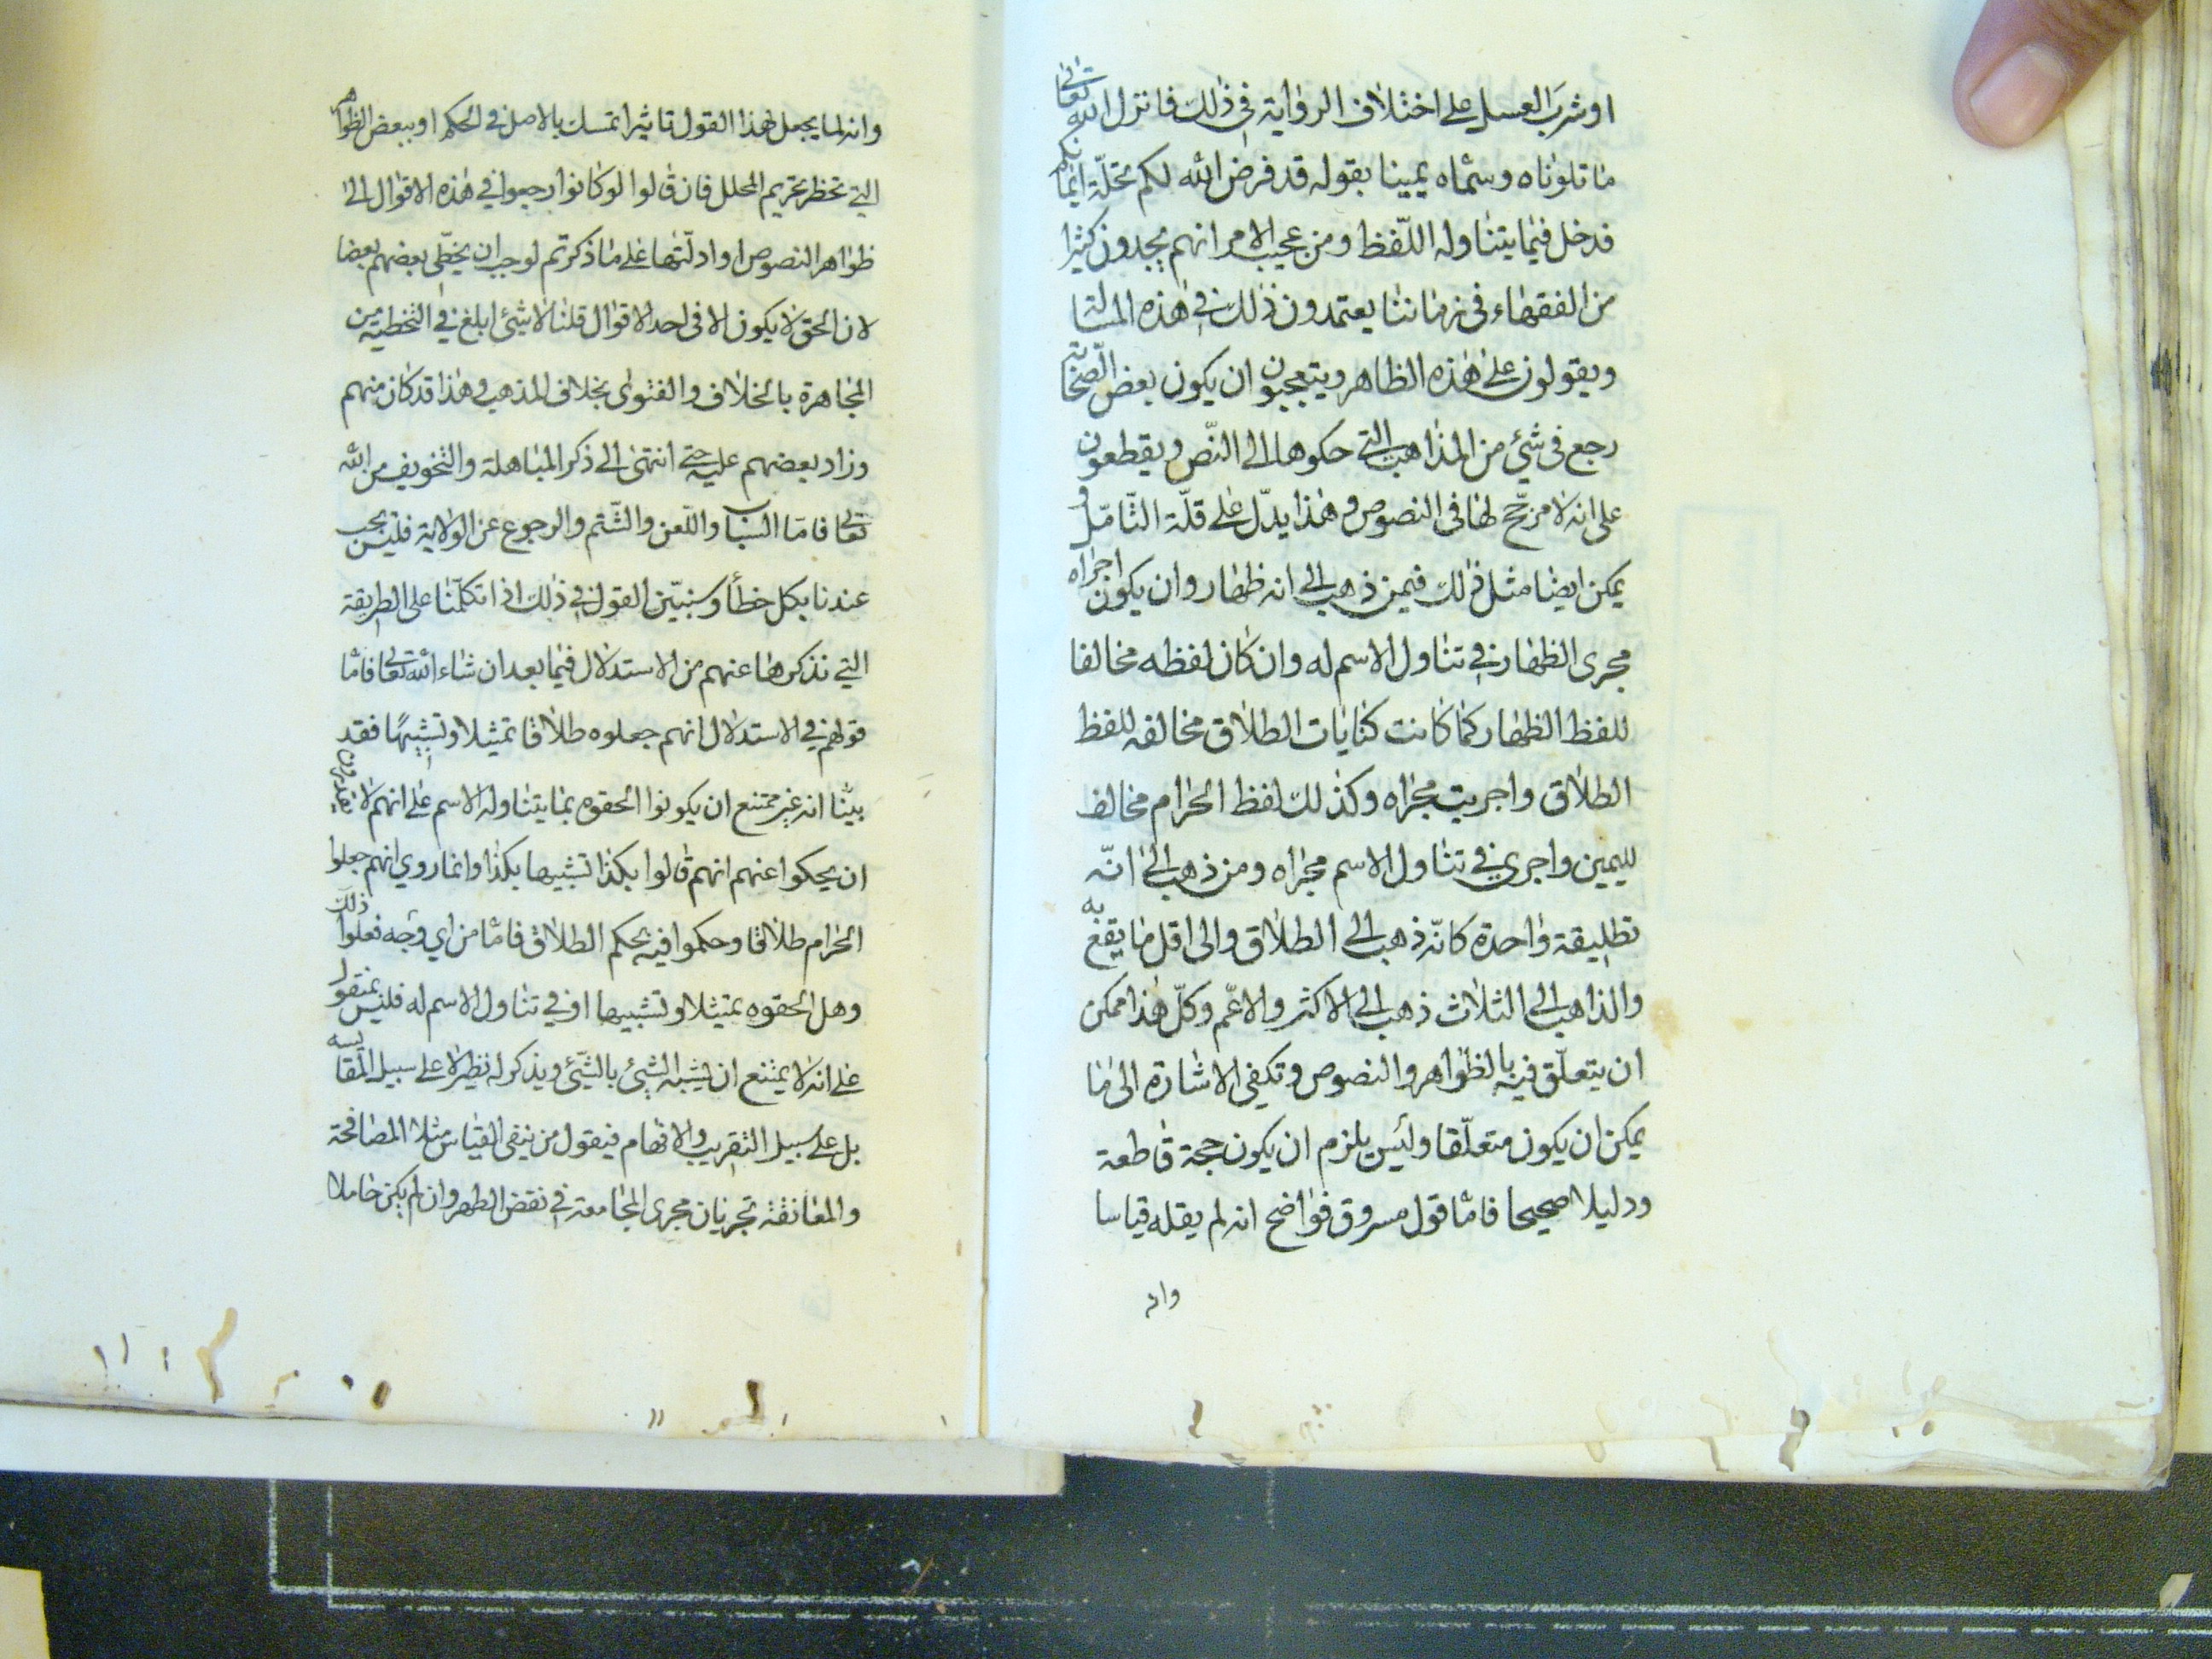 او شرب العسل على اختلاف الرواية في ذلك فانزل الله تعالى
ما تلوناه وسماه يمينا بقوله قد فرض الله لكم تحلة ايمانكم
فدخل فيما يتناوله اللفظ ومن عجيب الامر انهم يجدون كثيرا
من الفقهاء في زماننا يعتمدون ذلك في هذه المسالة
ويقولون على هذه الظاهر ويتعجبون ان يكون بعض الصحابة
رجع في شئ من المذاهب التي حكوها الى النص ويقطعون
على انه لا مرجح لها في النصوص وهذا يدل على قلة التامل و
يمكن ايضا مثل ذلك فيمن ذهب الى انه ظهار وان يكون اجراه
مجرى الظهار في تناول الاسم له وان كان لفظه مخالفا
للفظ الظهار كما كانت كنايات الطلاق مخالفه للفظ
الطلاق واجريت مجراه وكذلك لفظ الحرام مخالف
لليمين واجرى في تناول الاسم مجراه ومن ذهب الى انه
تطليقة واحدة كانه ذهب الى الطلاق والى اقل ما يقع به
والذاهب الى الثلاث ذهب الى الاكثر والاعم وكل هذا ممكن
ان يتعلق فيه بالظواهر والنصوص وتكفي الاشارة الى ما
يمكن ان يكون متعلقا وليس يلزم ان يكون حجة قاطعة
ودليلا صحيحا فاما قول مسروق فواضح انه لم يقله قياسا
وانه
وانه لما يجعل لهذا القول تاثيرا تمسك بالاصل في الحكم او ببعض الظواهر
التي تحظر تحريم المحلل فان قالوا لو كانوا رجعوا في هذه الاقوال الى
ظواهر النصوص او ادلتها على ما ذكرتم لوجب ان يخطى بعضهم بعضا
لان الحق لا يكون الا في احد الاقوال قلنا لا شئ ابلغ في التخطية من
المجاهرة بالخلاف والفتوى بخلاف المذهب وهذا قد كان منهم
وزاد بعضهم عليه حتى انتهى الى ذكر المباهلة والتخويف من الله
تعالى فاما السباب واللعن والشتم والرجوع عن الولاية فليس يجب
عندنا بكل خطأ وسنبين القول في ذلك اذا تكلمنا على الطريقة
التي نذكرها عنهم من الاستدلال فيما بعد ان شاء الله تعالى فاما
قولهم في الاستدلال انهم جعلوه طلاقا تمثيلا وتشبيها فقد
بينا انه غير ممتنع ان يكونوا الحقوه بما يتناوله الاسم على انهم لا يقدرون
ان يحكوا عنهم انهم قالوا بكذا تشبيها بكذا وانما روي انهم جعلوا
الحرام طلاقا وحكموا فيه بحكم الطلاق فاما من اي وجه فعلوا ذلك
وهل الحقوه تمثيلا وتشبيها او في تناول الاسم له فليس بمنقول
على انه لا يمتنع ان يشبه الشئ بالشئ ويذكر له نظير لا على سبيل المقايسه
بل على سبيل التقريب والافهام فيقول من ينفي القياس مثلا المصافحة
والمعانقة تجريان مجرى المجامعة في نقض الطهر وان لم يكن حاملا